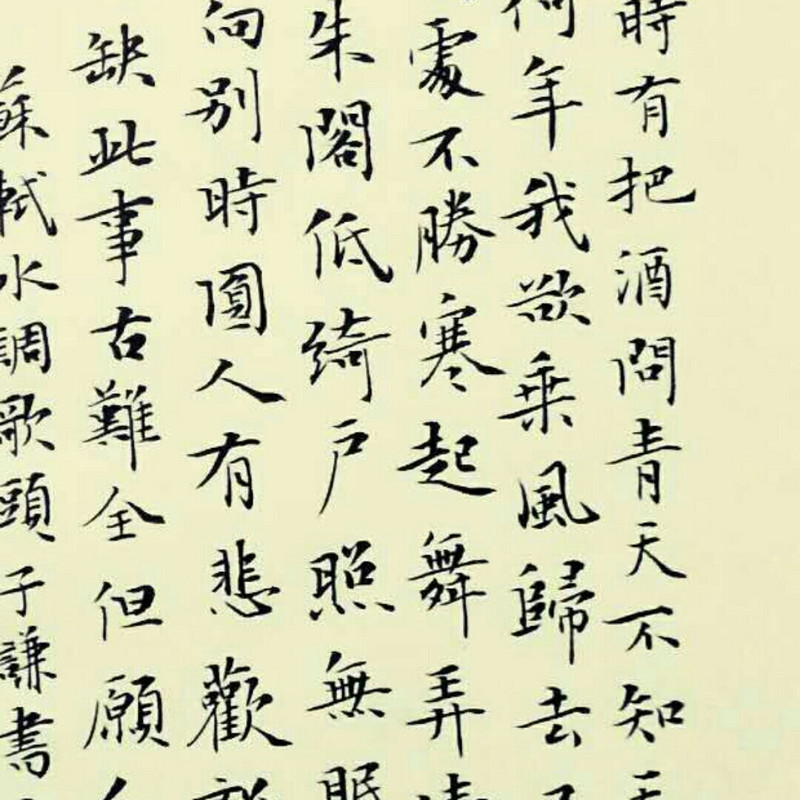 時有把酒問青天不知天
何年我欲乘風歸去又
處不勝寒起舞弄清
朱閣低綺戶照無眠
向別時圓人有悲歡離
缺此事古難全但願人
蘇軾水調歌頭子謙書